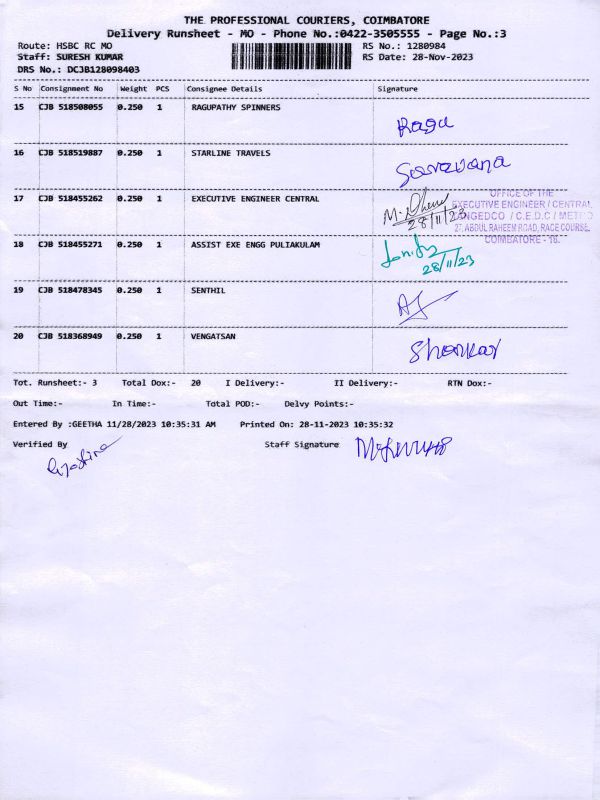 THE PROFESSIONAL COURIERS, COIMBATORE
Delivery Runsheet - MO - Phone No.:0422-3505555 - Page No.:3
Route: HSBC RC MO RS No.: 1280984
Staff: SURESH KUMAR RS Date: 28-Nov-2023
DRS No.: DCJB128098403
S No Consignment No Weight PCS Consignee Details Signature
15 CJB 518508055 0.250 1 RAGUPATHY SPINNERS Ragu
16 CJB 518519887 0.250 1 STARLINE TRAVELS Saravana
OFFICE OF THE
17 CJB 518455262 0.250 1 EXECUTIVE ENGINEER CENTRAL EXECUTIVE ENGINEER / CENTRAL
28/11/23 / C.E.D.C / METRO
27, ABDUL RAHEEM ROAD, RACE COURSE,
COIMBATORE - 18.
18 CJB 518455271 0.250 1 ASSIST EXE ENGG PULIAKULAM
28/11/23
19 CJB 518478345 0.250 1 SENTHIL
20 CJB 518368949 0.250 1 VENGATSAN Shankar
Tot. Runsheet:- 3 Total Dox:- 20 I Delivery:- II Delivery:- RTN Dox:-
Out Time:- In Time:- Total POD:- Delvy Points:-
Entered By :GEETHA 11/28/2023 10:35:31 AM Printed On: 28-11-2023 10:35:32
Verified By Staff Signature